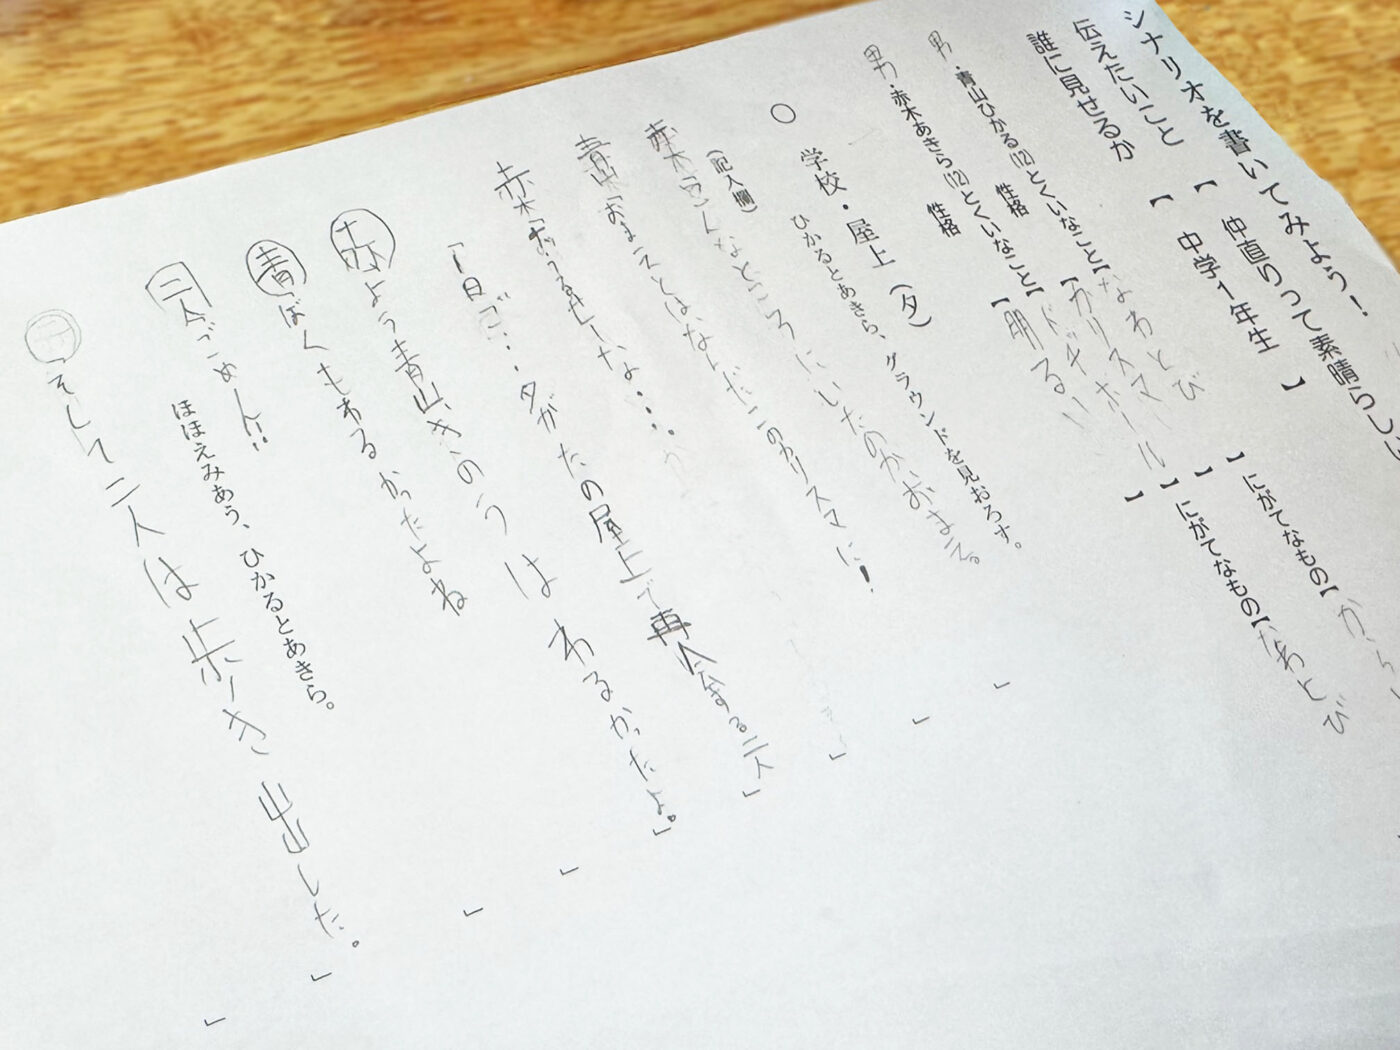 シナリオを書いてみよう!
伝えたいこと 【 仲直りって素晴らしい
誰に見せるか 【 中学1年生 】
男・青山ひかる(12) とくいなこと【なわとび 】にがてなもの【
性格 【カリスマ 】
男・赤木あきら(12) とくいなこと【ドッチボール 】にがてなもの【なわとび
性格 【明るい 】
○ 学校・屋上(夕)
ひかるとあきら、グラウンドを見おろす。
(記入欄)
赤木「こんなところにいたのかおまえ。 」
青山「おまえとはなんだこのカリスマに! 」
赤木「うるせーな・・・ 」
「1日ご・・夕がたの屋上で再会する二人 」
赤 よう青山、きのうはわるかったよ。 」
青 ぼくもわるかったよね 」
二人 ごめん!! 」
ほほえみあう、ひかるとあきら。
「そして二人は歩き出した。 」